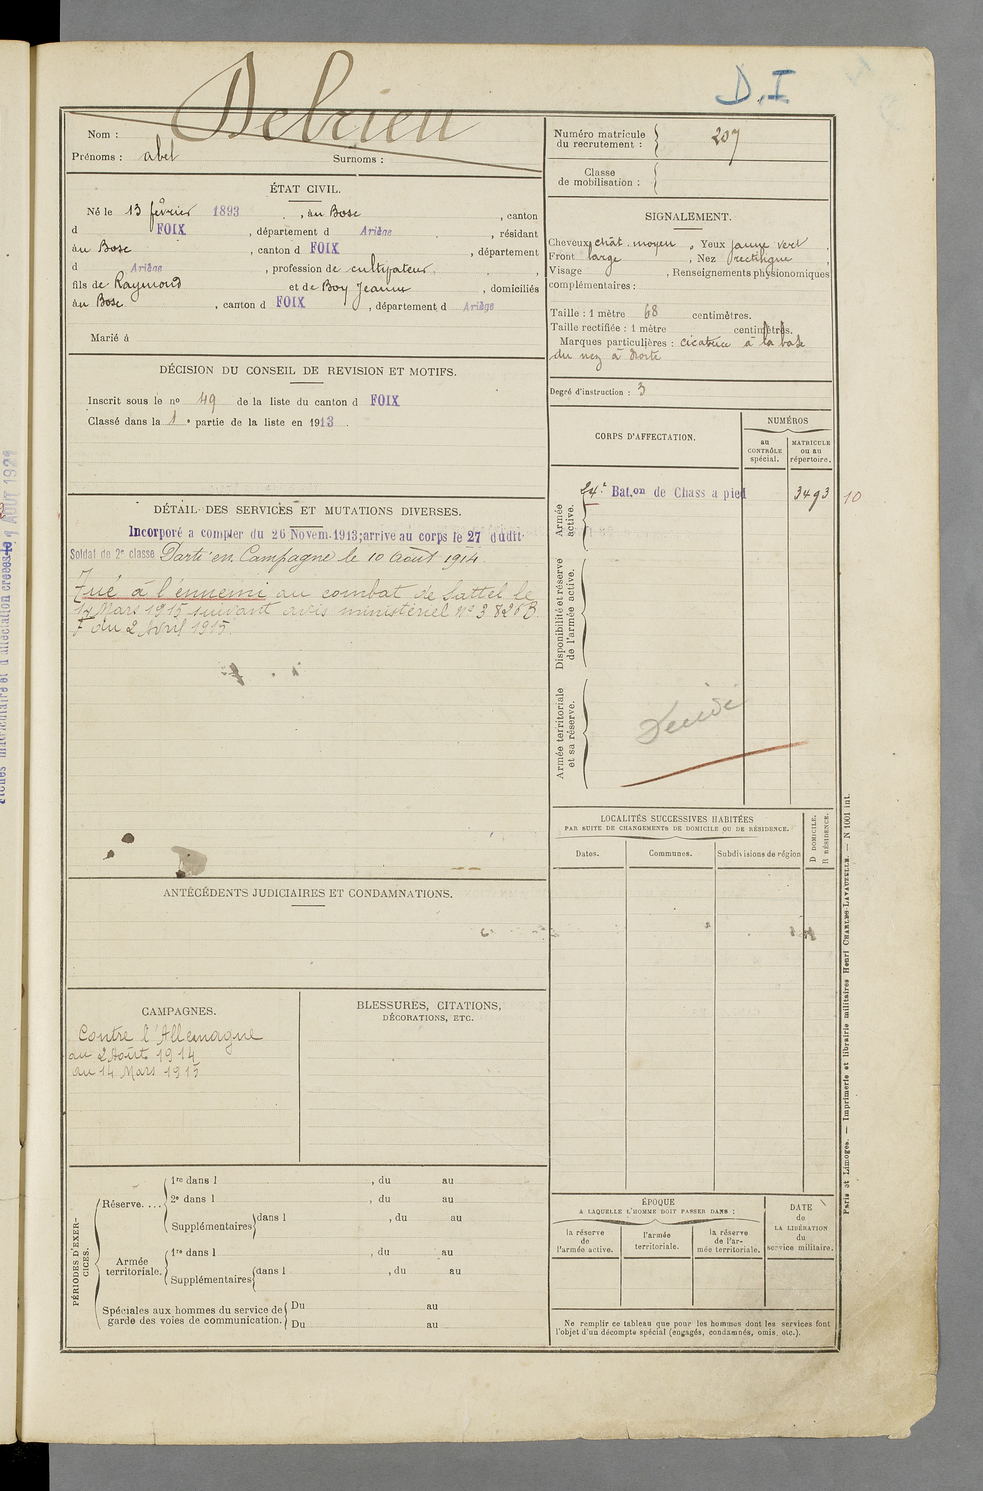 D.I
Nom : Debrieu
Prénoms : abel Surnoms :
Numéro matricule du recrutement : 207
Classe de mobilisation :
ÉTAT CIVIL.
Né le 13 février 1893, au Bosc, canton
d FOIX, département d Ariège, résidant
au Bosc, canton d FOIX, département
d Ariège, profession de cultivateur,
fils de Raymond et de Boy Jeanne, domiciliés
au Bosc, canton d FOIX, département d Ariège
Marié à
SIGNALEMENT.
Cheveux chât. moyen, Yeux jaune vert,
Front large, Nez rectiligne,
Visage , Renseignements physionomiques
complémentaires :
Taille : 1 mètre 68 centimètres.
Taille rectifiée : 1 mètre centimètres.
Marques particulières : cicatrice à la base
du nez à droite
Degré d'instruction : 3
DÉCISION DU CONSEIL DE REVISION ET MOTIFS.
Inscrit sous le no 49 de la liste du canton d FOIX
Classé dans la 1e partie de la liste en 1913.
CORPS D'AFFECTATION.
NUMÉROS
au CONTRÔLE spécial.
MATRICULE ou au répertoire.
Armée active.
24e Bat.on de Chass a pied 3493 10
Disponibilité et réserve de l'armée active.
Armée territoriale et sa réserve.
DÉTAIL DES SERVICES ET MUTATIONS DIVERSES.
Incorporé a compter du 26 Novem. 1913; arrive au corps le 27 dudit
Soldat de 2e classe Parti en Campagne le 10 Août 1914.
Tué à l'ennemi au combat de Sattel le
14 Mars 1915 suivant avis ministériel No 3826B
F du 2 Avril 1915.
LOCALITÉS SUCCESSIVES HABITÉES
PAR SUITE DE CHANGEMENTS DE DOMICILE OU DE RÉSIDENCE.
Dates. Communes. Subdivisions de région
D DOMICILE.
R RÉSIDENCE.
ANTÉCÉDENTS JUDICIAIRES ET CONDAMNATIONS.
CAMPAGNES.
Contre l'Allemagne
du 2 Août 1914
au 14 Mars 1915
BLESSURES, CITATIONS,
DÉCORATIONS, ETC.
PÉRIODES D'EXERCICES.
Réserve....
1re dans l , du au
2e dans l , du au
Supplémentaires dans l , du au
Armée territoriale.
1re dans l , du au
Supplémentaires dans l , du au
Spéciales aux hommes du service de
garde des voies de communication.
Du au
Du au
ÉPOQUE
A LAQUELLE L'HOMME DOIT PASSER DANS :
la réserve de l'armée active.
l'armée territoriale.
la réserve de l'armée territoriale.
DATE de LA LIBÉRATION du service militaire.
Ne remplir ce tableau que pour les hommes dont les services font
l'objet d'un décompte spécial (engagés, condamnés, omis, etc.).
Paris et Limoges. — Imprimerie et librairie militaires Henri CHARLES-LAVAUZELLE. — N 1001 int.